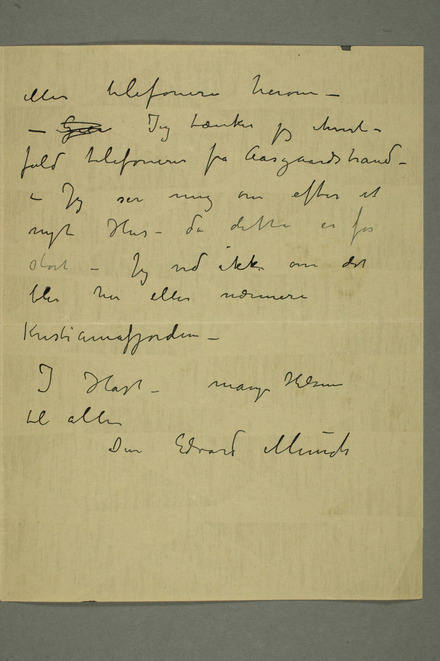 eller telefonere herom –
– Jeg tænker jeg ialfald
fald telefonerer fra Aasgaardstrand –
– Jeg ser mig om efter et
nyt Hus – da dette er for
stort – Jeg ved ikke om det
blir her eller nærmere
Kristianiafjorden –
I Hast – mange Hilsener
til alle
Din Edvard Munch